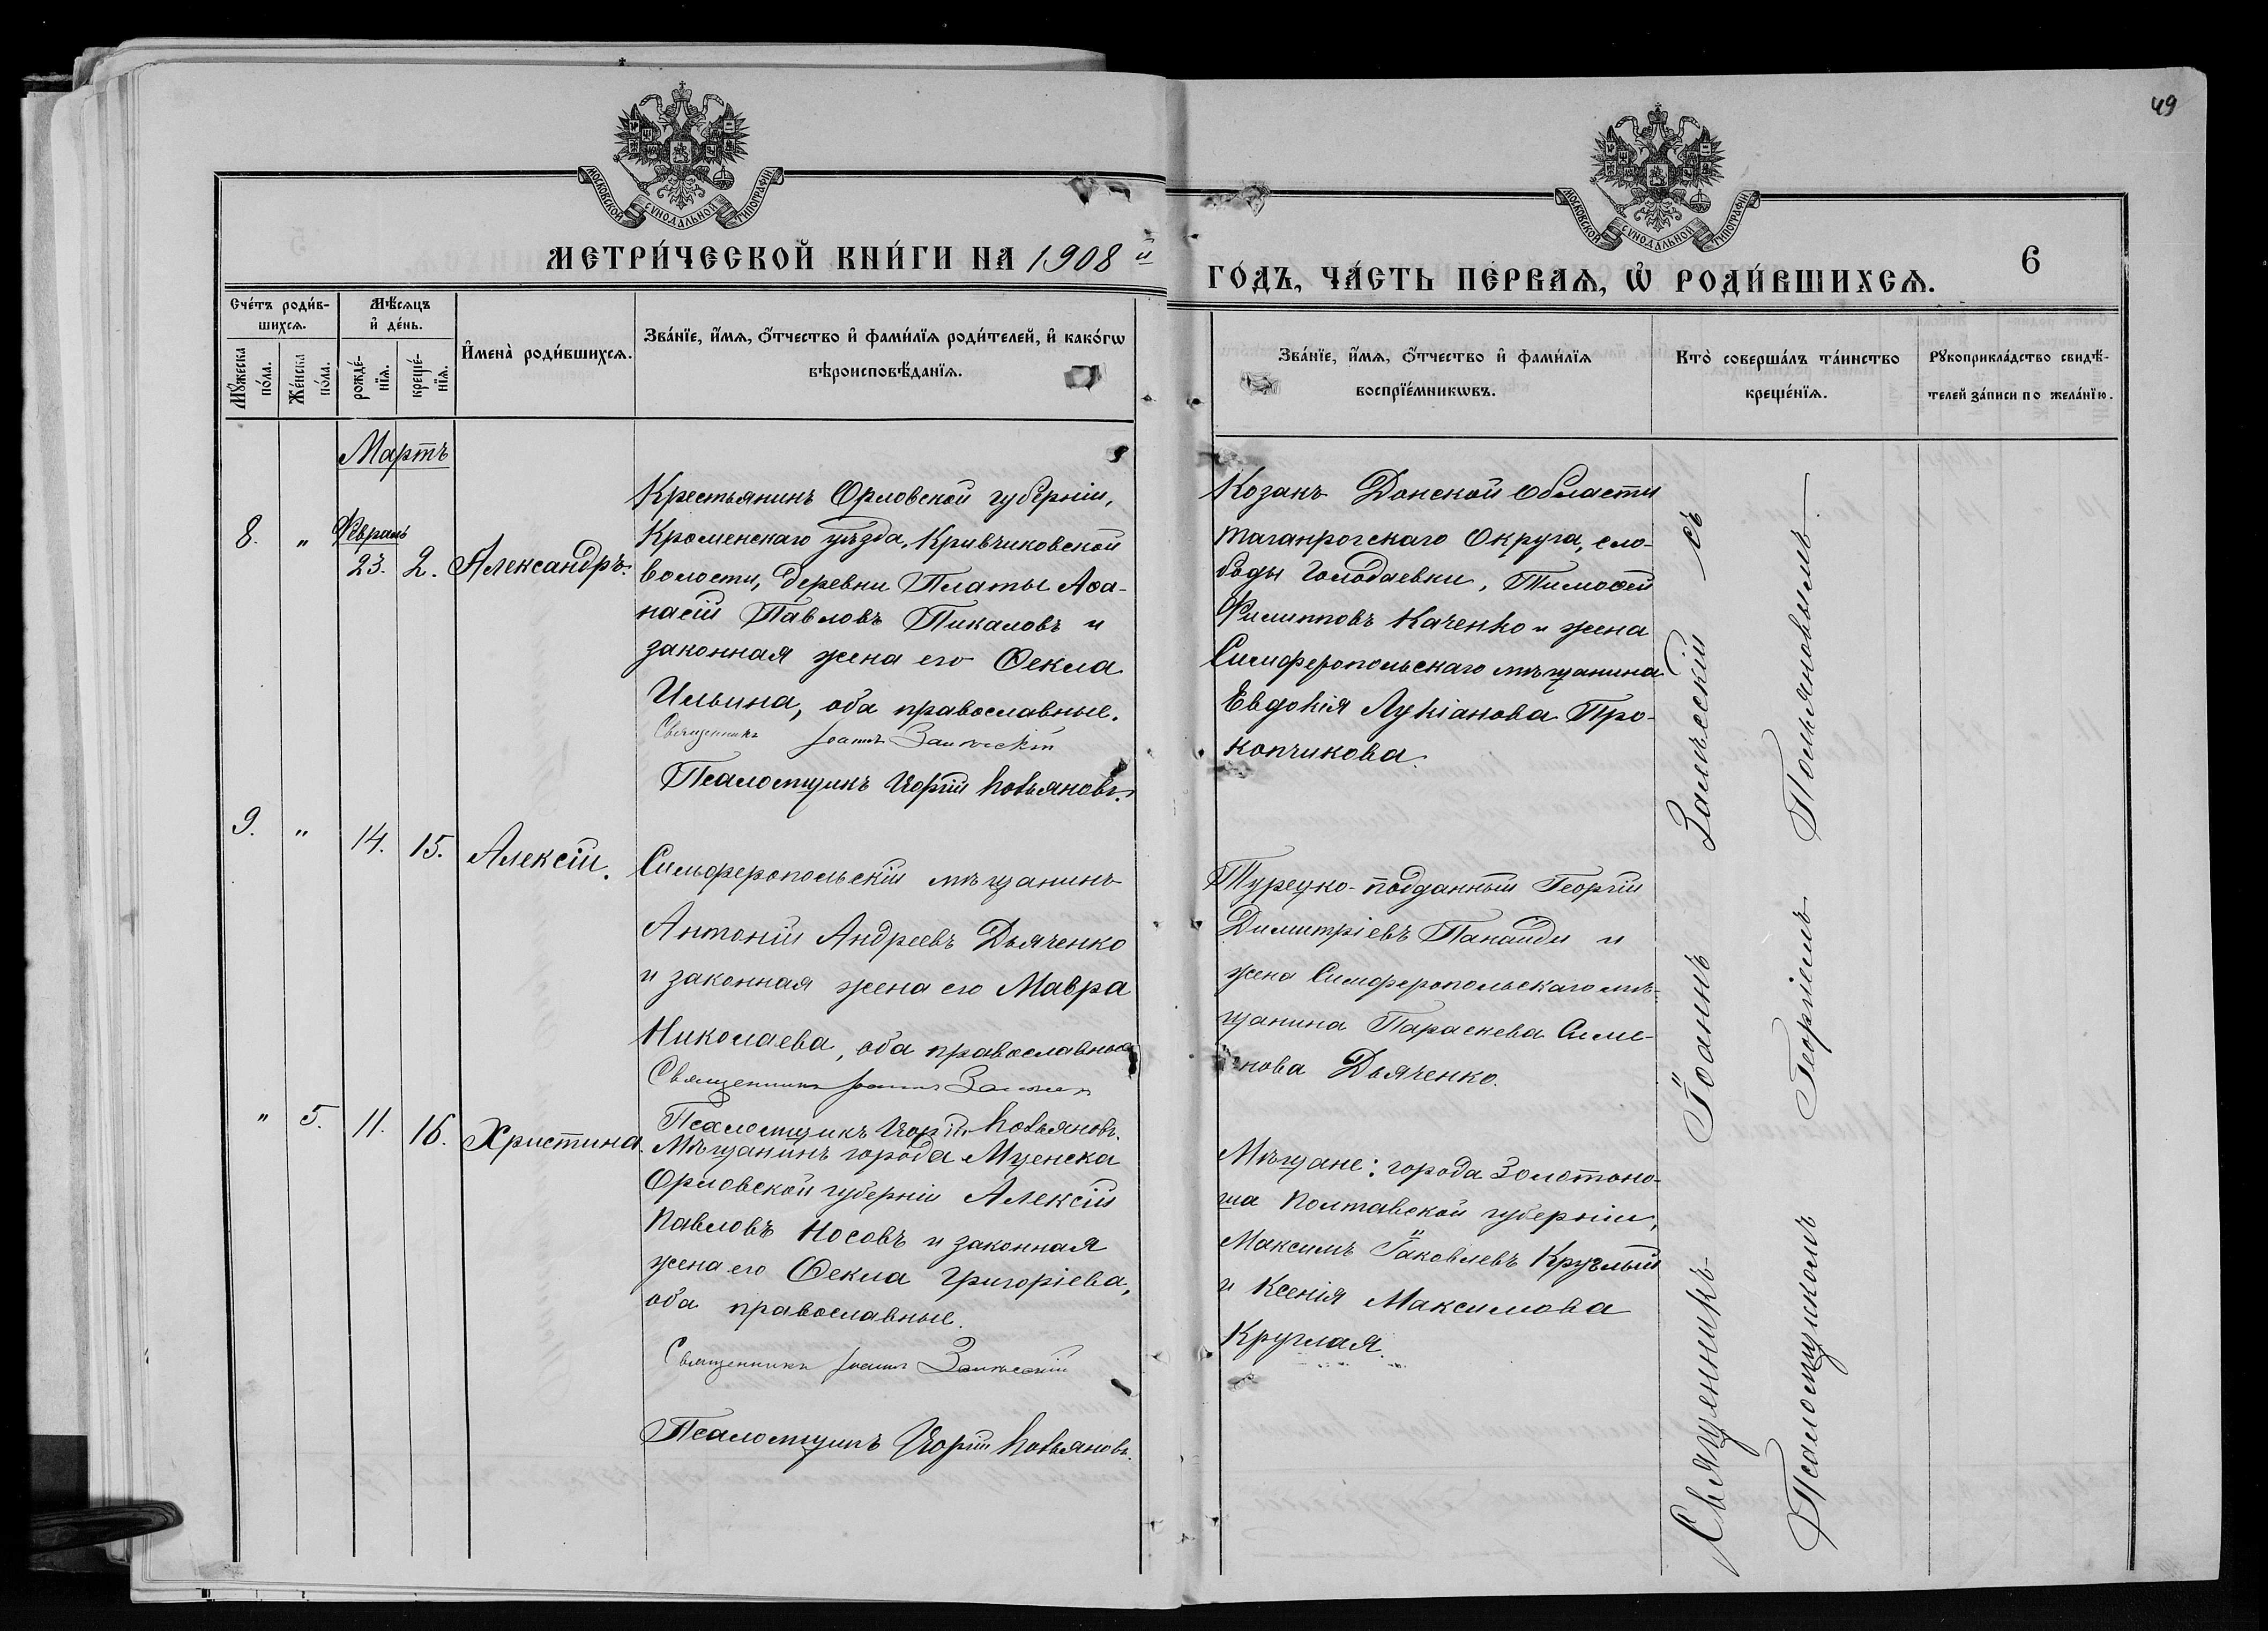 49
МОСКОВСКОЙ СѴНОДАЛЬНОЙ ТИПОГРАФІИ
МОСКОВСКОЙ СѴНОДАЛЬНОЙ ТИПОГРАФІИ
МЕТРИ́ЧЕСКОЙ КНИ́ГИ НА 1908 й
ГО́ДЪ, ЧА́СТЬ ПЕ́РВАѦ, Ѡ҆ РОДИ́ВШИХСѦ.
6
Сче́тъ роди́в-
шихсѧ.
Мꙋ́жеска
по́ла.
Же́нска
по́ла.
Мѣ́сѧцъ
и҆ де́нь.
рожде́-
нїѧ.
креще́-
нїѧ.
И҆мена̀ роди́вшихсѧ.
Зва́нїе, и҆́мѧ, ѻ҆́тчество и҆ фами́лїѧ роди́телей, и҆ како́гѡ
вѣроисповѣ́данїѧ.
Зва́нїе, и҆́мѧ, ѻ҆́тчество и҆ фами́лїѧ
воспрїе́мникѡвъ.
Кто̀ соверша́лъ та́инство
креще́нїѧ.
Рꙋкоприкла́дство свидѣ́-
телей за́писи по жела́нїю.
Мартъ
8.
"
Февраль
23.
2.
Александръ.
Крестьянинъ Орловской губерніи,
Кроменскаго уѣзда, Кривчиковской
волости, деревни Платы Аѳа-
насій Павловъ Пикаловъ и
законная жена его Ѳекла
Ильина, оба православные.
Священникъ Іоаннъ Замѣсскій
Псаломщикъ Георгій Польяновъ.
Козакъ Донской области
Таганрогскаго Округа, сло-
боды Голодаевки, Тимоѳей
Филипповъ Каченко и жена
Симферопольскаго мѣщанина
Евдокія Лукіанова Про-
копчикова.
9.
"
14.
15.
Алексій.
Симферопольскій мѣщанинъ
Антоній Андреевъ Дьяченко
и законная жена его Мавра
Николаева, оба православные
Священникъ Іоаннъ
Псаломщикъ Георгій Польяновъ.
Турецко-подданный Георгій
Димитріевъ Панаиди и
жена Симферопольскаго мѣ-
щанина Параскева Симе-
онова Дьяченко.
"
5.
11.
16.
Христина.
Мѣщанинъ города Мценска
Орловской губерніи Алексій
Павловъ Носовъ и законная
жена его Ѳекла Григоріева,
оба православные.
Священникъ Іоаннъ Замѣсскій
Псаломщикъ Георгій Польяновъ.
Мѣщане: города Золотоно-
ша Полтавской губерніи,
Максимъ Іаковлевъ Круглый
и Ксенія Максимова
Круглая.
Священникъ Іоаннъ Замѣсскій съ
Псаломщикомъ Георгіемъ Польяновымъ